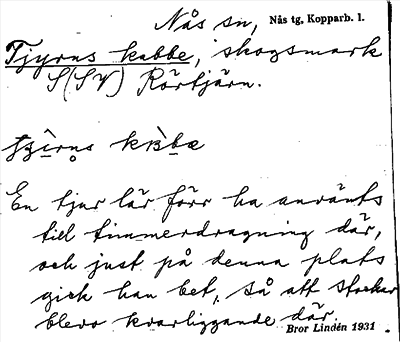 Nås sn, Nås tg, Kopparb. l.
Tjyrus kabbe, skogsmark
S(SV) Rörtjärn.
En tjur lär förr ha använts
till timmerdragning där,
och just på denna plats
gick han bet, så att stockar
blevo kvarliggande där.
Bror Lindén 1931